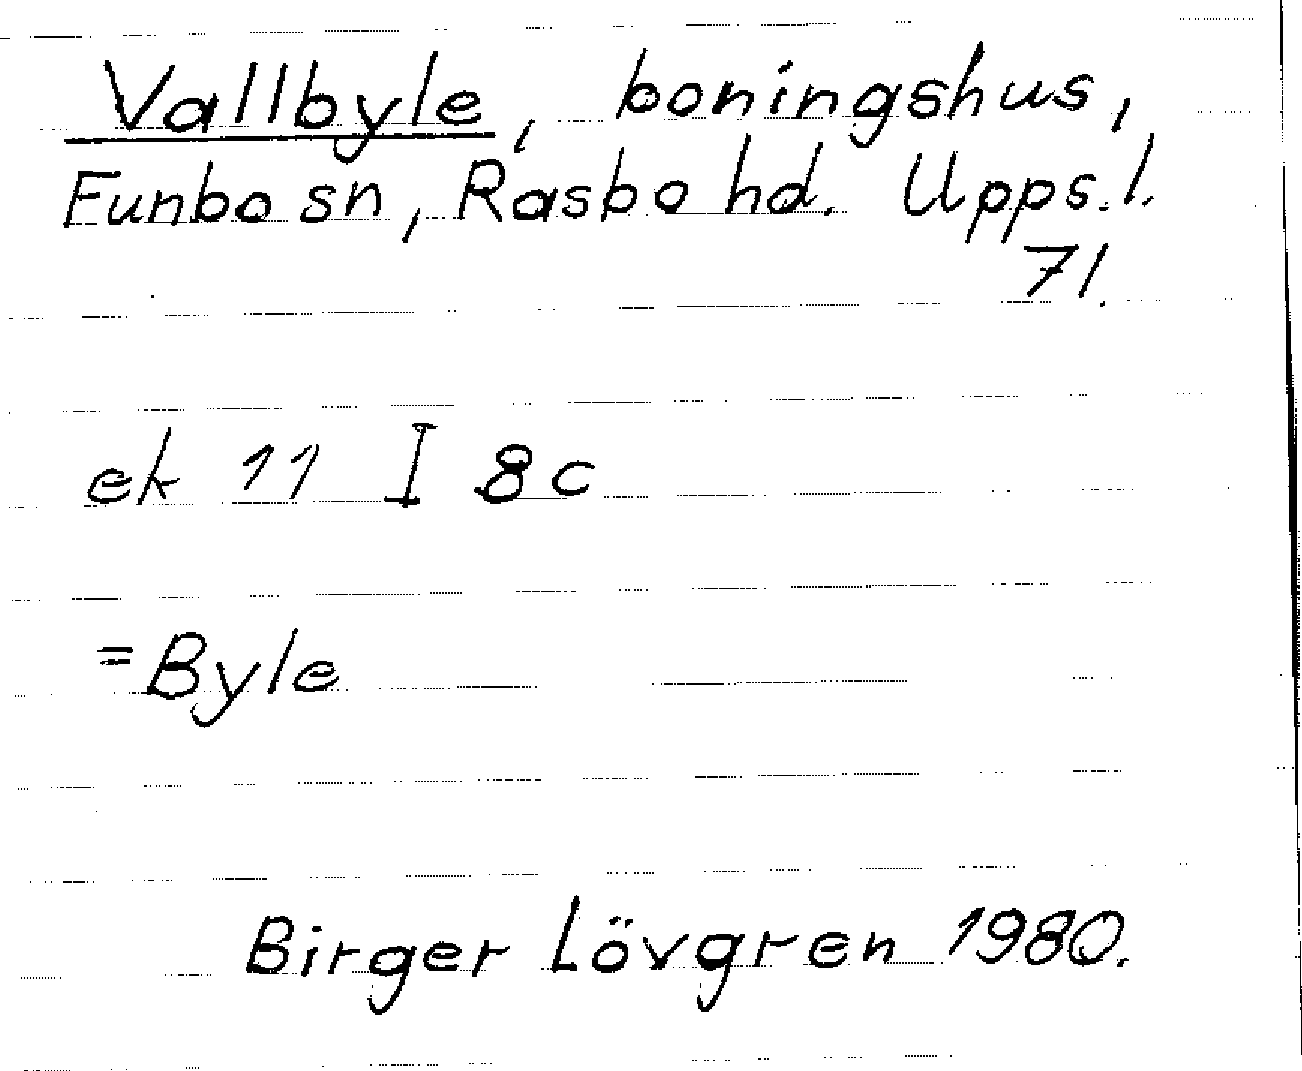 Vallbyle, boningshus,
Funbo sn, Rasbo hd. Upps.l.
71.
ek 11 I 8c
=Byle
Birger Lövgren 1980.